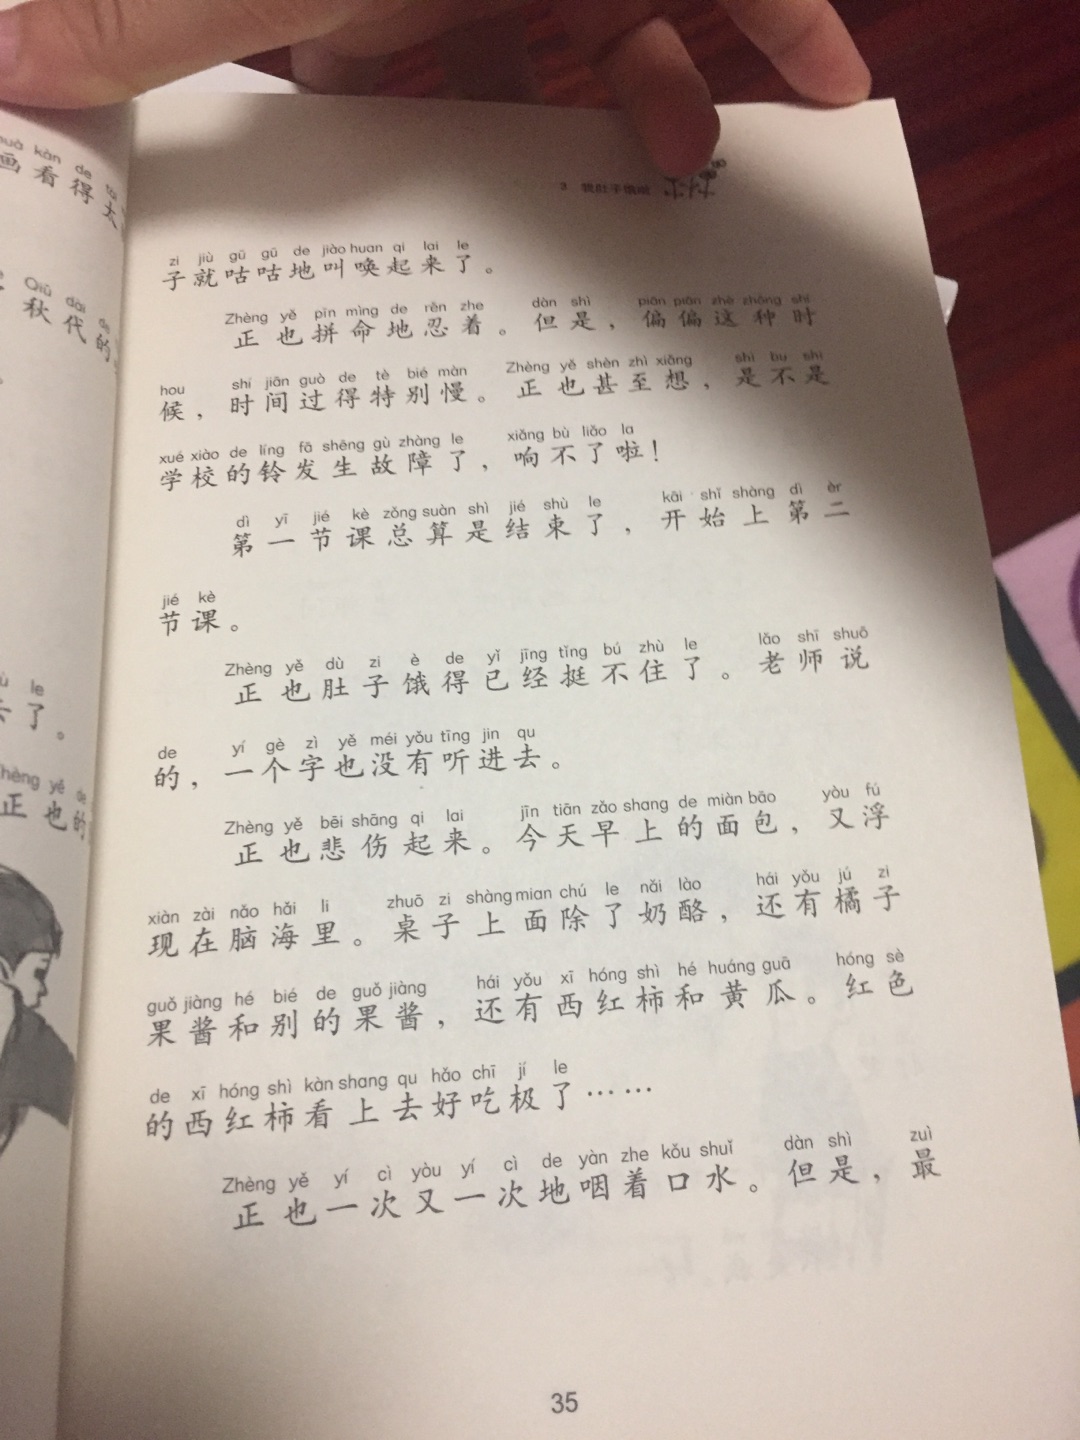 huà kàn de tài
画看得太
Qiū dài de
秋代的
le
去了。
Zhèng yě de
正也的
3 我肚子饿啦
zi jiù gū gū de jiào huan qi lai le
子就咕咕地叫唤起来了。
Zhèng yě pīn mìng de rěn zhe dàn shì piān piān zhè zhǒng shí
正也拼命地忍着。但是，偏偏这种时
hou shí jiān guò de tè bié màn Zhèng yě shèn zhì xiǎng shì bu shì
候，时间过得特别慢。正也甚至想，是不是
xué xiào de líng fā shēng gù zhàng le xiǎng bù liǎo la
学校的铃发生故障了，响不了啦！
dì yī jié kè zǒng suàn shì jié shù le kāi shǐ shàng dì èr
第一节课总算是结束了，开始上第二
jié kè
节课。
Zhèng yě dù zi è de yǐ jīng tǐng bú zhù le lǎo shī shuō
正也肚子饿得已经挺不住了。老师说
de yí gè zì yě méi yǒu tīng jin qu
的，一个字也没有听进去。
Zhèng yě bēi shāng qi lai jīn tiān zǎo shang de miàn bāo yòu fú
正也悲伤起来。今天早上的面包，又浮
xiàn zài nǎo hǎi li zhuō zi shàng mian chú le nǎi lào hái yǒu jú zi
现在脑海里。桌子上面除了奶酪，还有橘子
guǒ jiàng hé bié de guǒ jiàng hái yǒu xī hóng shì hé huáng guā hóng sè
果酱和别的果酱，还有西红柿和黄瓜。红色
de xī hóng shì kàn shang qu hǎo chī jí le
的西红柿看上去好吃极了……
Zhèng yě yí cì yòu yí cì de yàn zhe kǒu shuǐ dàn shì zuì
正也一次又一次地咽着口水。但是，最
35